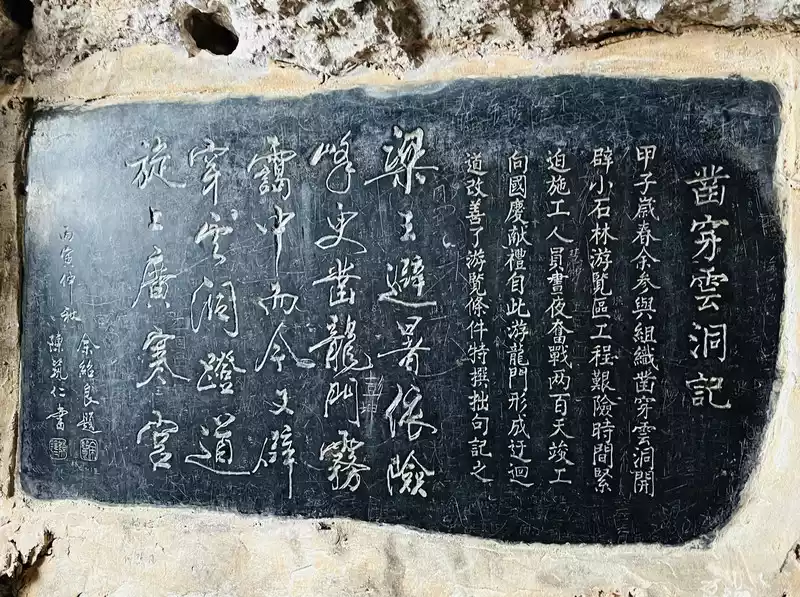 凿穿雲洞記
甲子歲春余参與組織凿穿雲洞開
辟小石林游覽區工程艱險時間緊
迫施工人員晝夜奮戰两百天竣工
向國慶献禮自此游龍門形成迂迴
道改善了游覽條件特撰拙句記之
梁王避暑依險
峰史凿龍門霧
靄中而今又辟
穿雲洞蹬道
旋上廣寒宮
丙寅仲秋
余紹良題
陳仁書